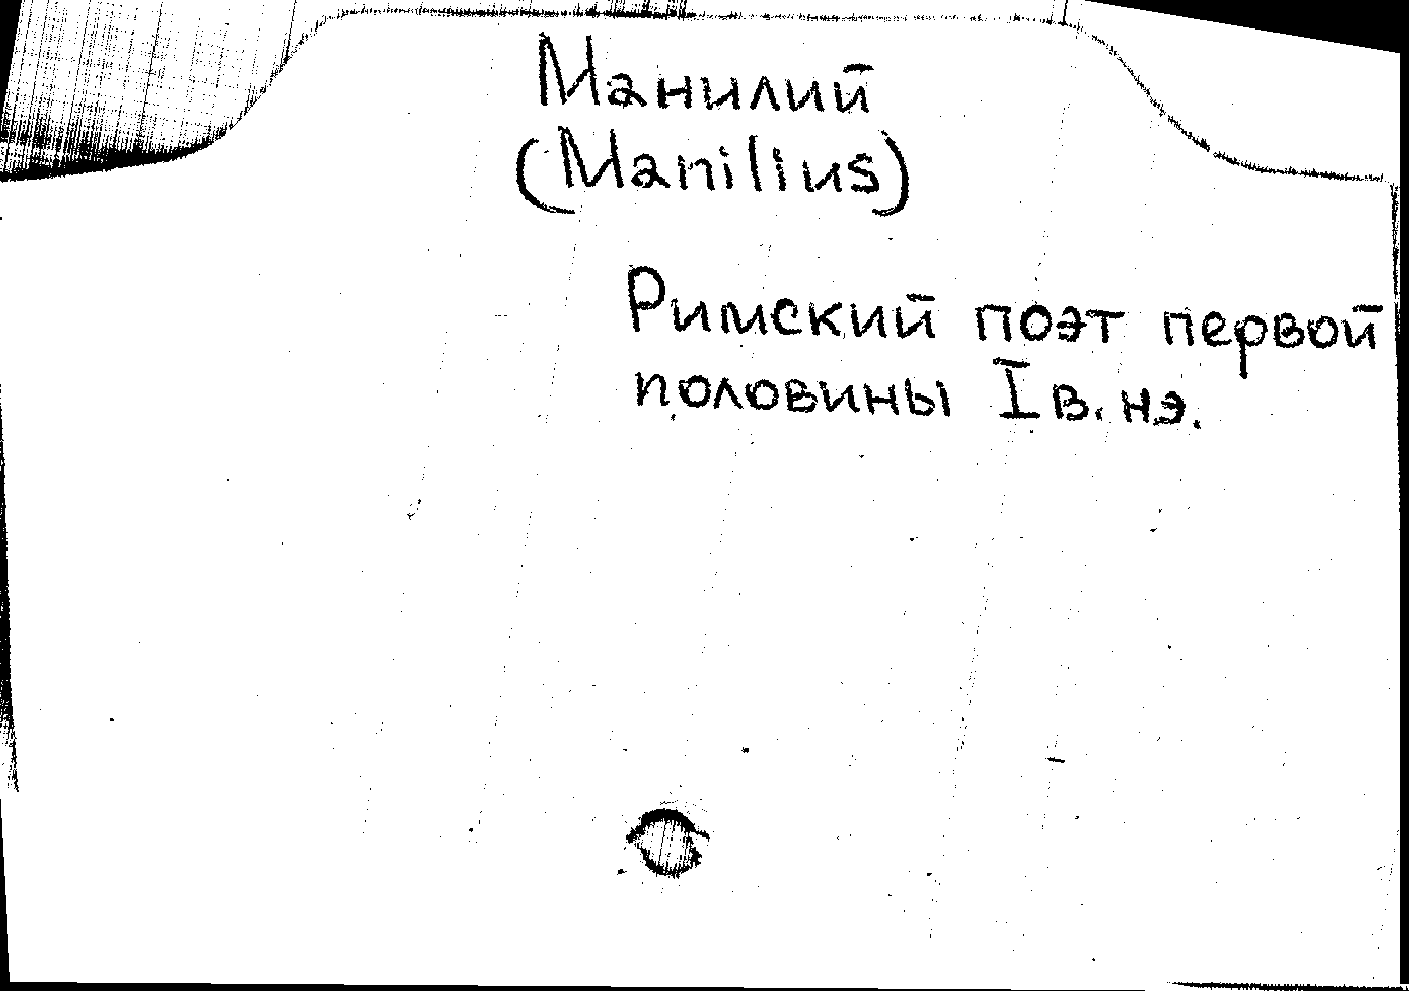 Манилий
(Manilius)
Римский поэт первой
половины I в. нэ.